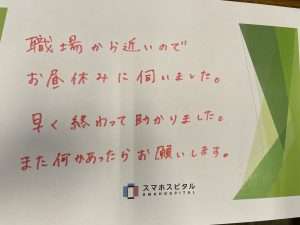 職場から近いので
お昼休みに伺いました。
早く終わって助かりました。
また何かあったらお願いします。
スマホスピタル
SMAHOSPITAL